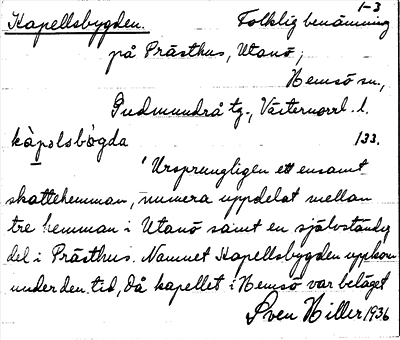 1-3
Kapellsbygden. Folklig benämning
på Prästhus, Utanö,
Hemsö sn,
Gudmundrå tg., Västernorrl. l.
kàpəlsbògda 133.
'Ursprungligen ett ensamt
skattehemman, numera uppdelat mellan
tre hemman i Utanö samt en självständig
del i Prästhus. Namnet Kapellsbygden uppkom
under den tid, då kapellet i Hemsö var beläget
Sven Hiller 1936